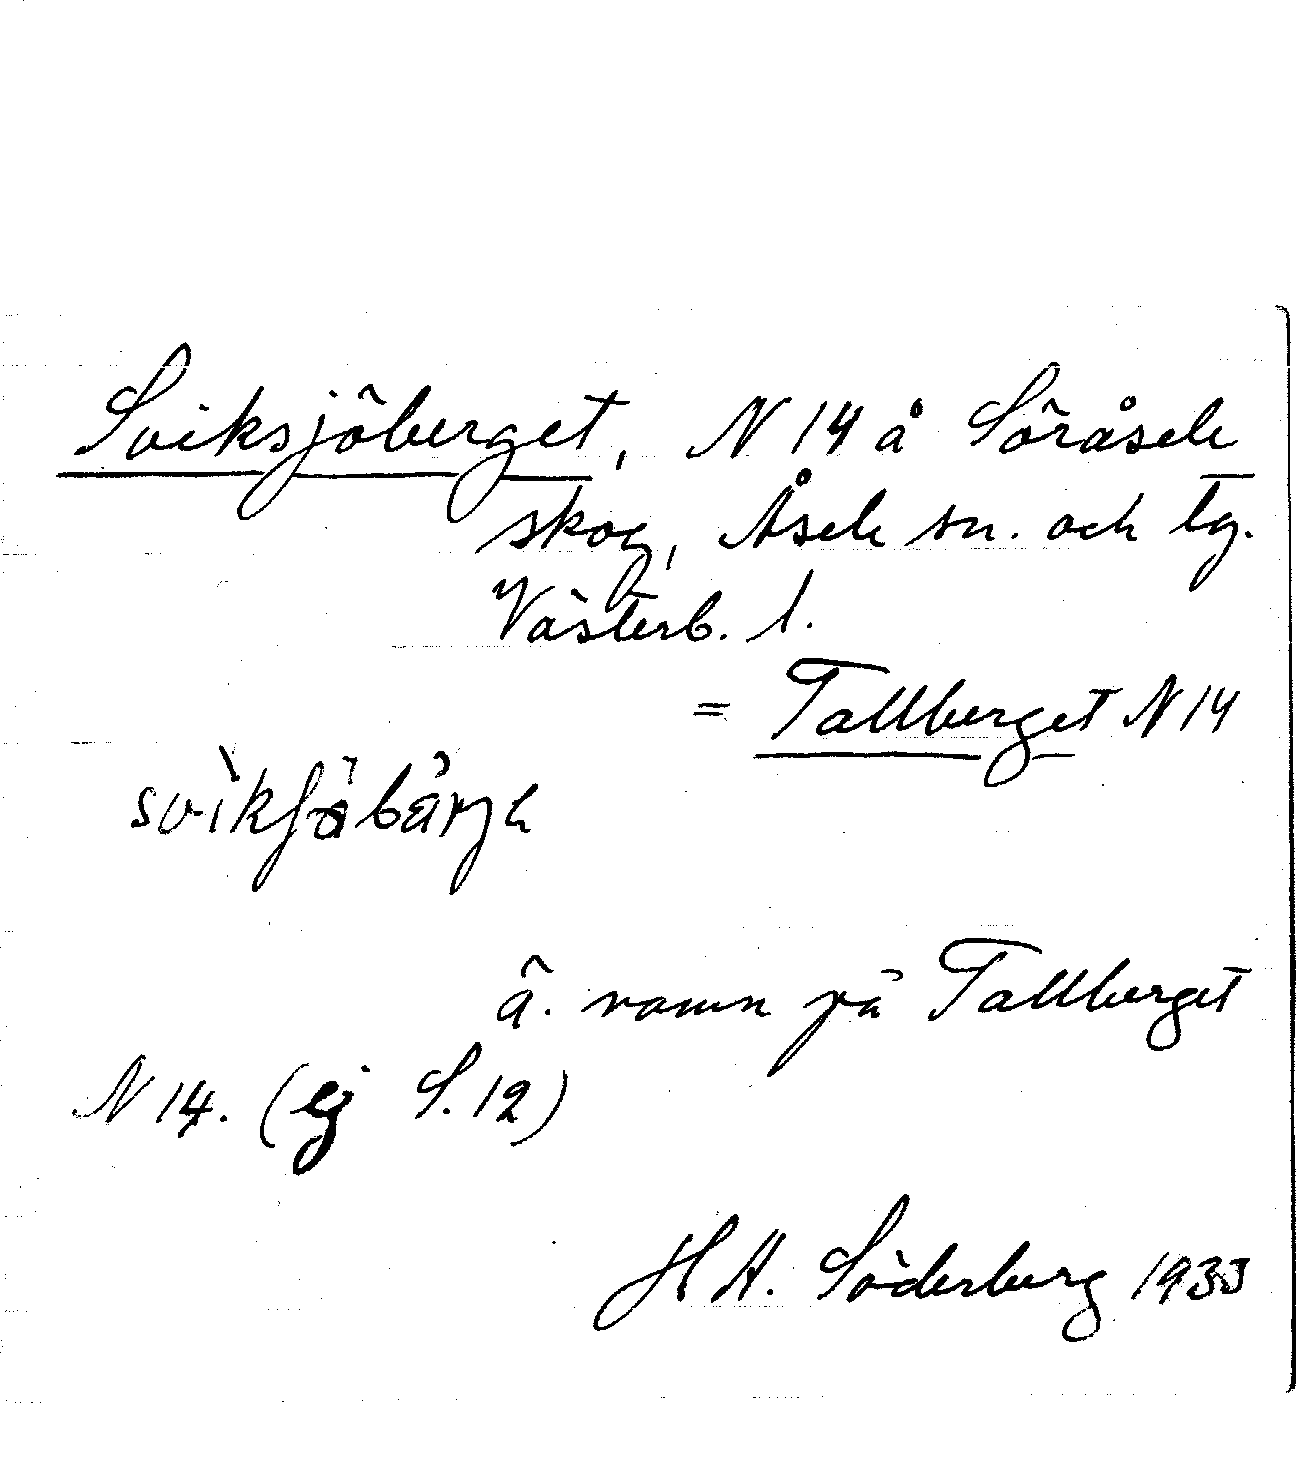 Sviksjöberget, N 14 å Söråsele
skog, Åsele sn. och tg.
Västerb. l.
= Tallberget N 14
ä. namn på Tallberget
N 14. (ej S. 12)
H A. Söderberg 1933